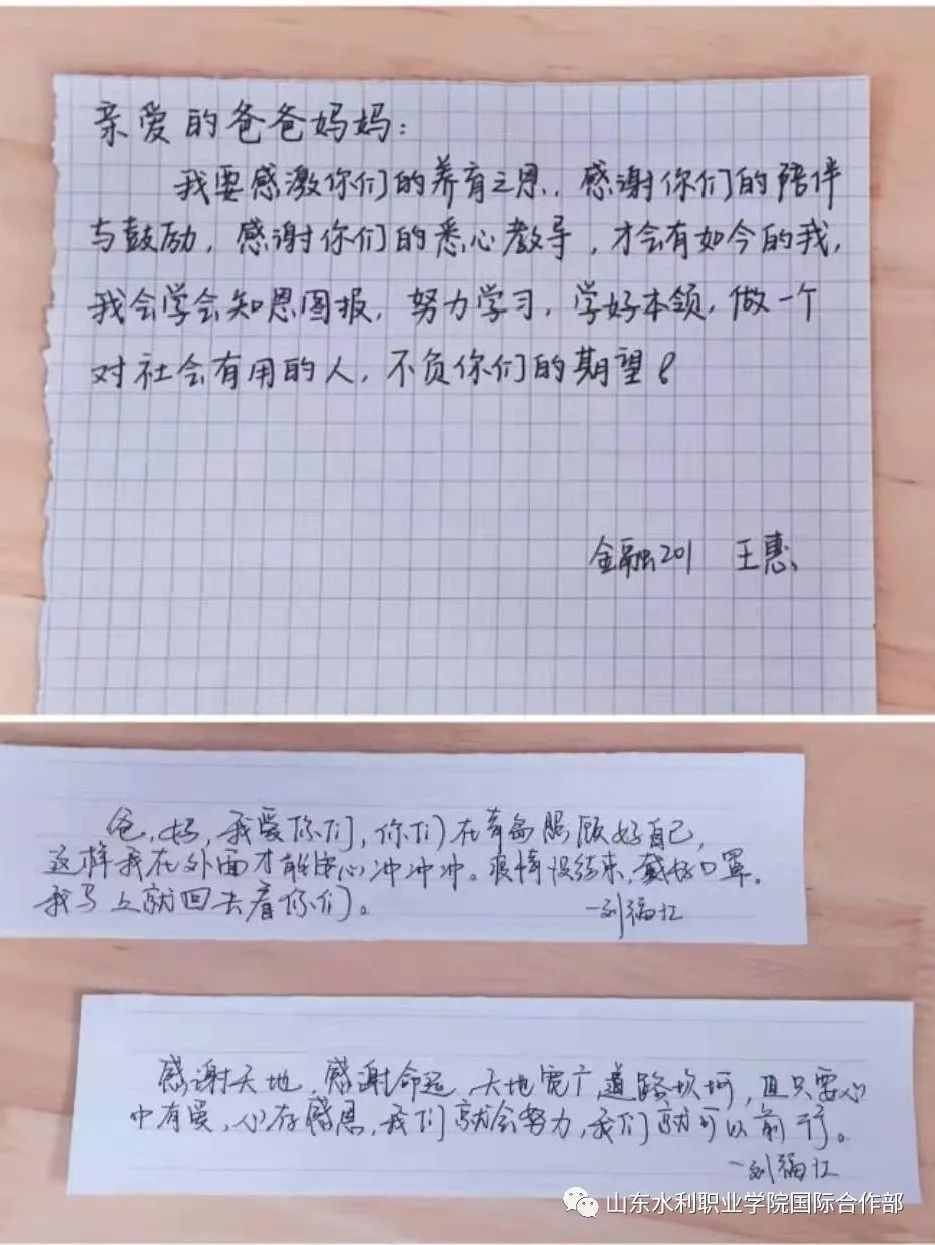 亲爱的爸爸妈妈：
我要感激你们的养育之恩，感谢你们的陪伴
与鼓励，感谢你们的悉心教导，才会有如今的我，
我会学会知恩图报，努力学习，学好本领，做一个
对社会有用的人，不负你们的期望！
金融201 王惠
爸，妈，我爱你们，你们在青岛照顾好自己，
这样我在外面才能安心冲冲冲。疫情没结束，戴好口罩。
我马上就回去看你们。
—刘福江
感谢天地，感谢命运，天地宽广，道路坎坷，但只要心
中有爱，心存感恩，我们就会努力，我们就可以前行。
—刘福江
山东水利职业学院国际合作部